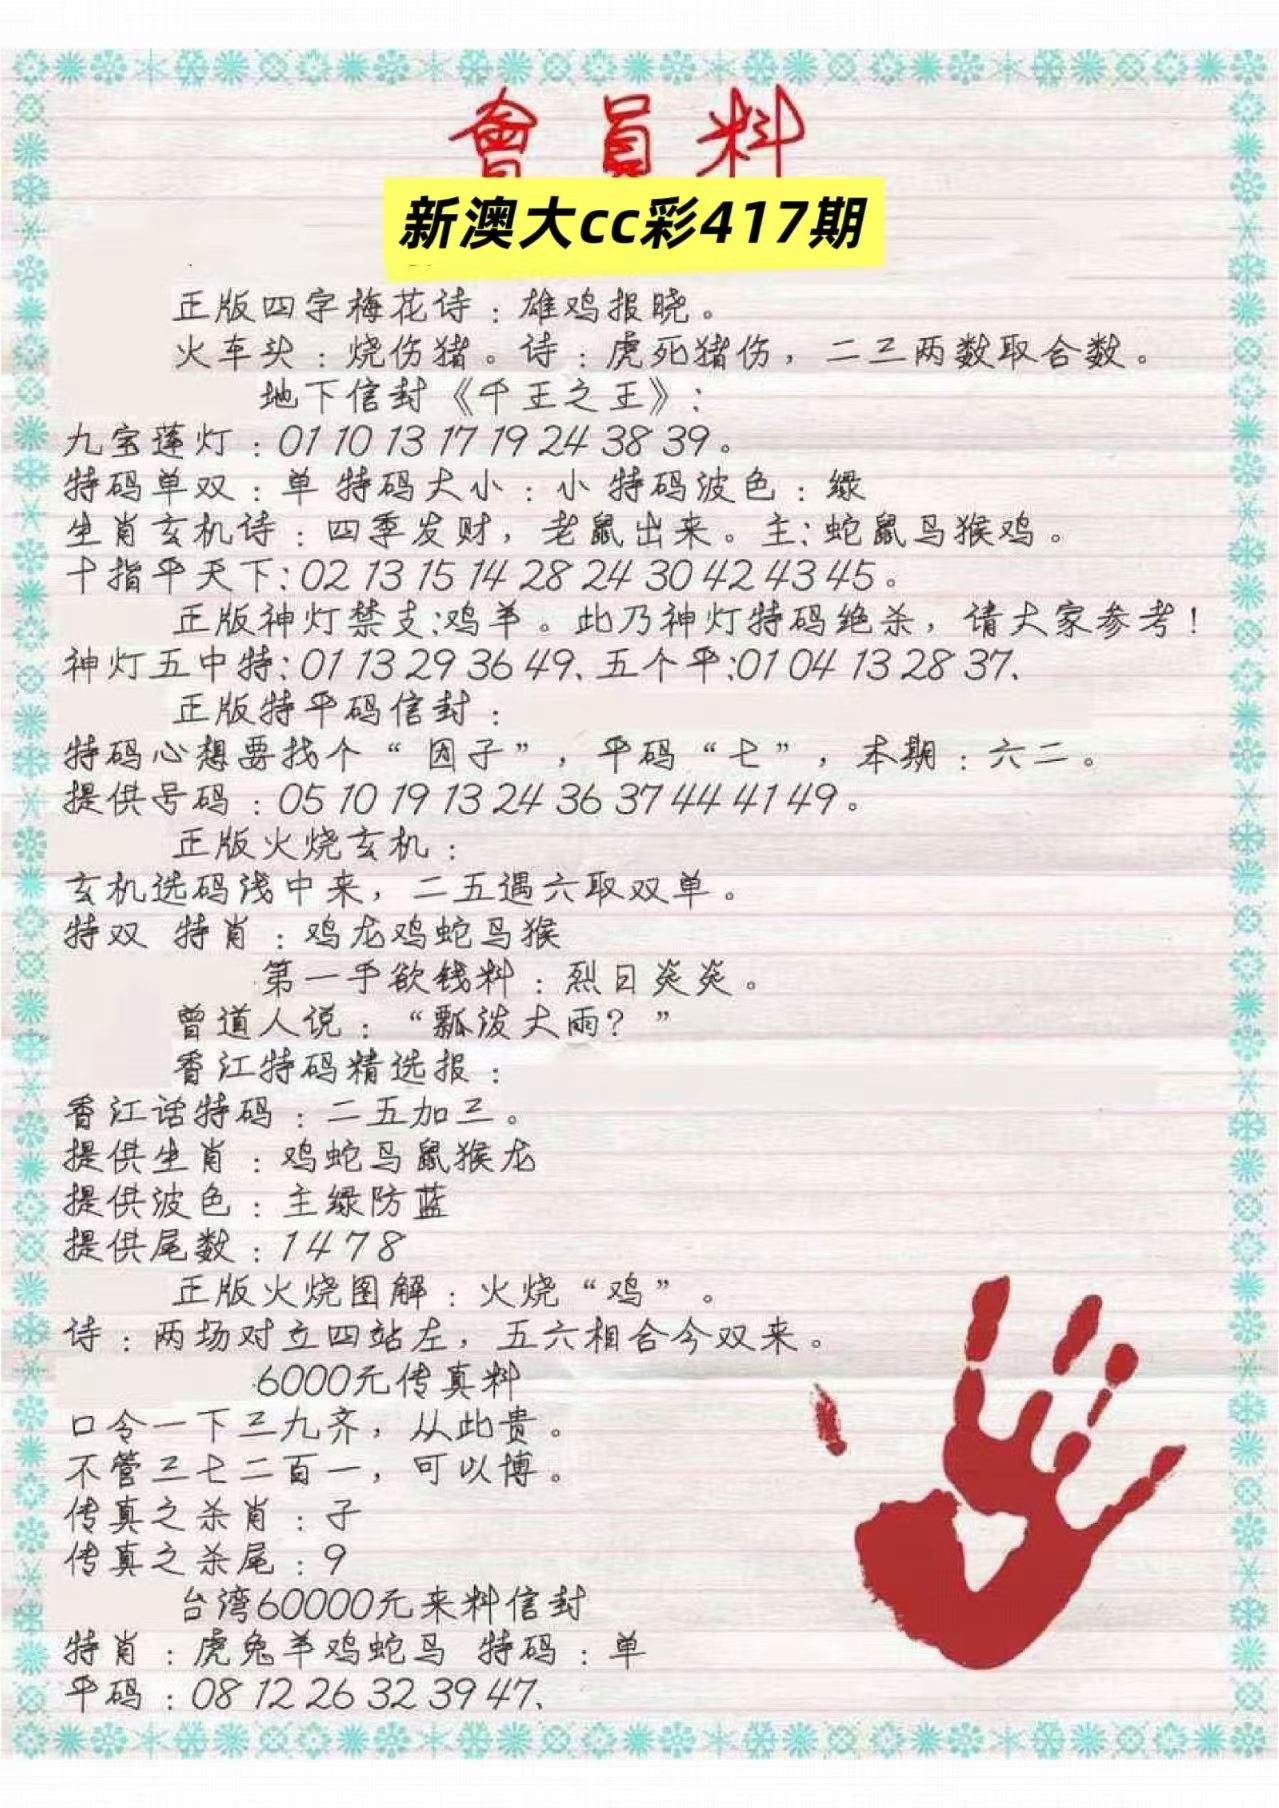 會員料
新澳大cc彩417期
正版四字梅花诗：雄鸡报晓。
火车头：烧伤猪。诗：虎死猪伤，二三两数取合数。
地下信封《千王之王》：
九宝莲灯：01 10 13 17 19 24 38 39。
特码单双：单 特码大小：小 特码波色：绿
生肖玄机诗：四季发财，老鼠出来。主：蛇鼠马猴鸡。
十指平天下：02 13 15 14 28 24 30 42 43 45。
正版神灯禁支：鸡羊。此乃神灯特码绝杀，请大家参考！
神灯五中特：01 13 29 36 49、五个平：01 04 13 28 37、
正版特平码信封：
特码心想要找个“因子”，平码“七”，本期：六二。
提供号码：05 10 19 13 24 36 37 44 41 49。
正版火烧玄机：
玄机选码浅中来，二五遇六取双单。
特双 特肖：鸡龙鸡蛇马猴
第一手欲钱料：烈日炎炎。
曾道人说：“瓢泼大雨？”
香江特码精选报：
香江话特码：二五加三。
提供生肖：鸡蛇马鼠猴龙
提供波色：主绿防蓝
提供尾数：1 4 7 8
正版火烧图解：火烧“鸡”。
诗：两场对立四站左，五六相合今双来。
6000元传真料
口令一下三九齐，从此贵。
不管三七二百一，可以博。
传真之杀肖：子
传真之杀尾：9
台湾60000元来料信封
特肖：虎兔羊鸡蛇马 特码：单
平码：08 12 26 32 39 47、